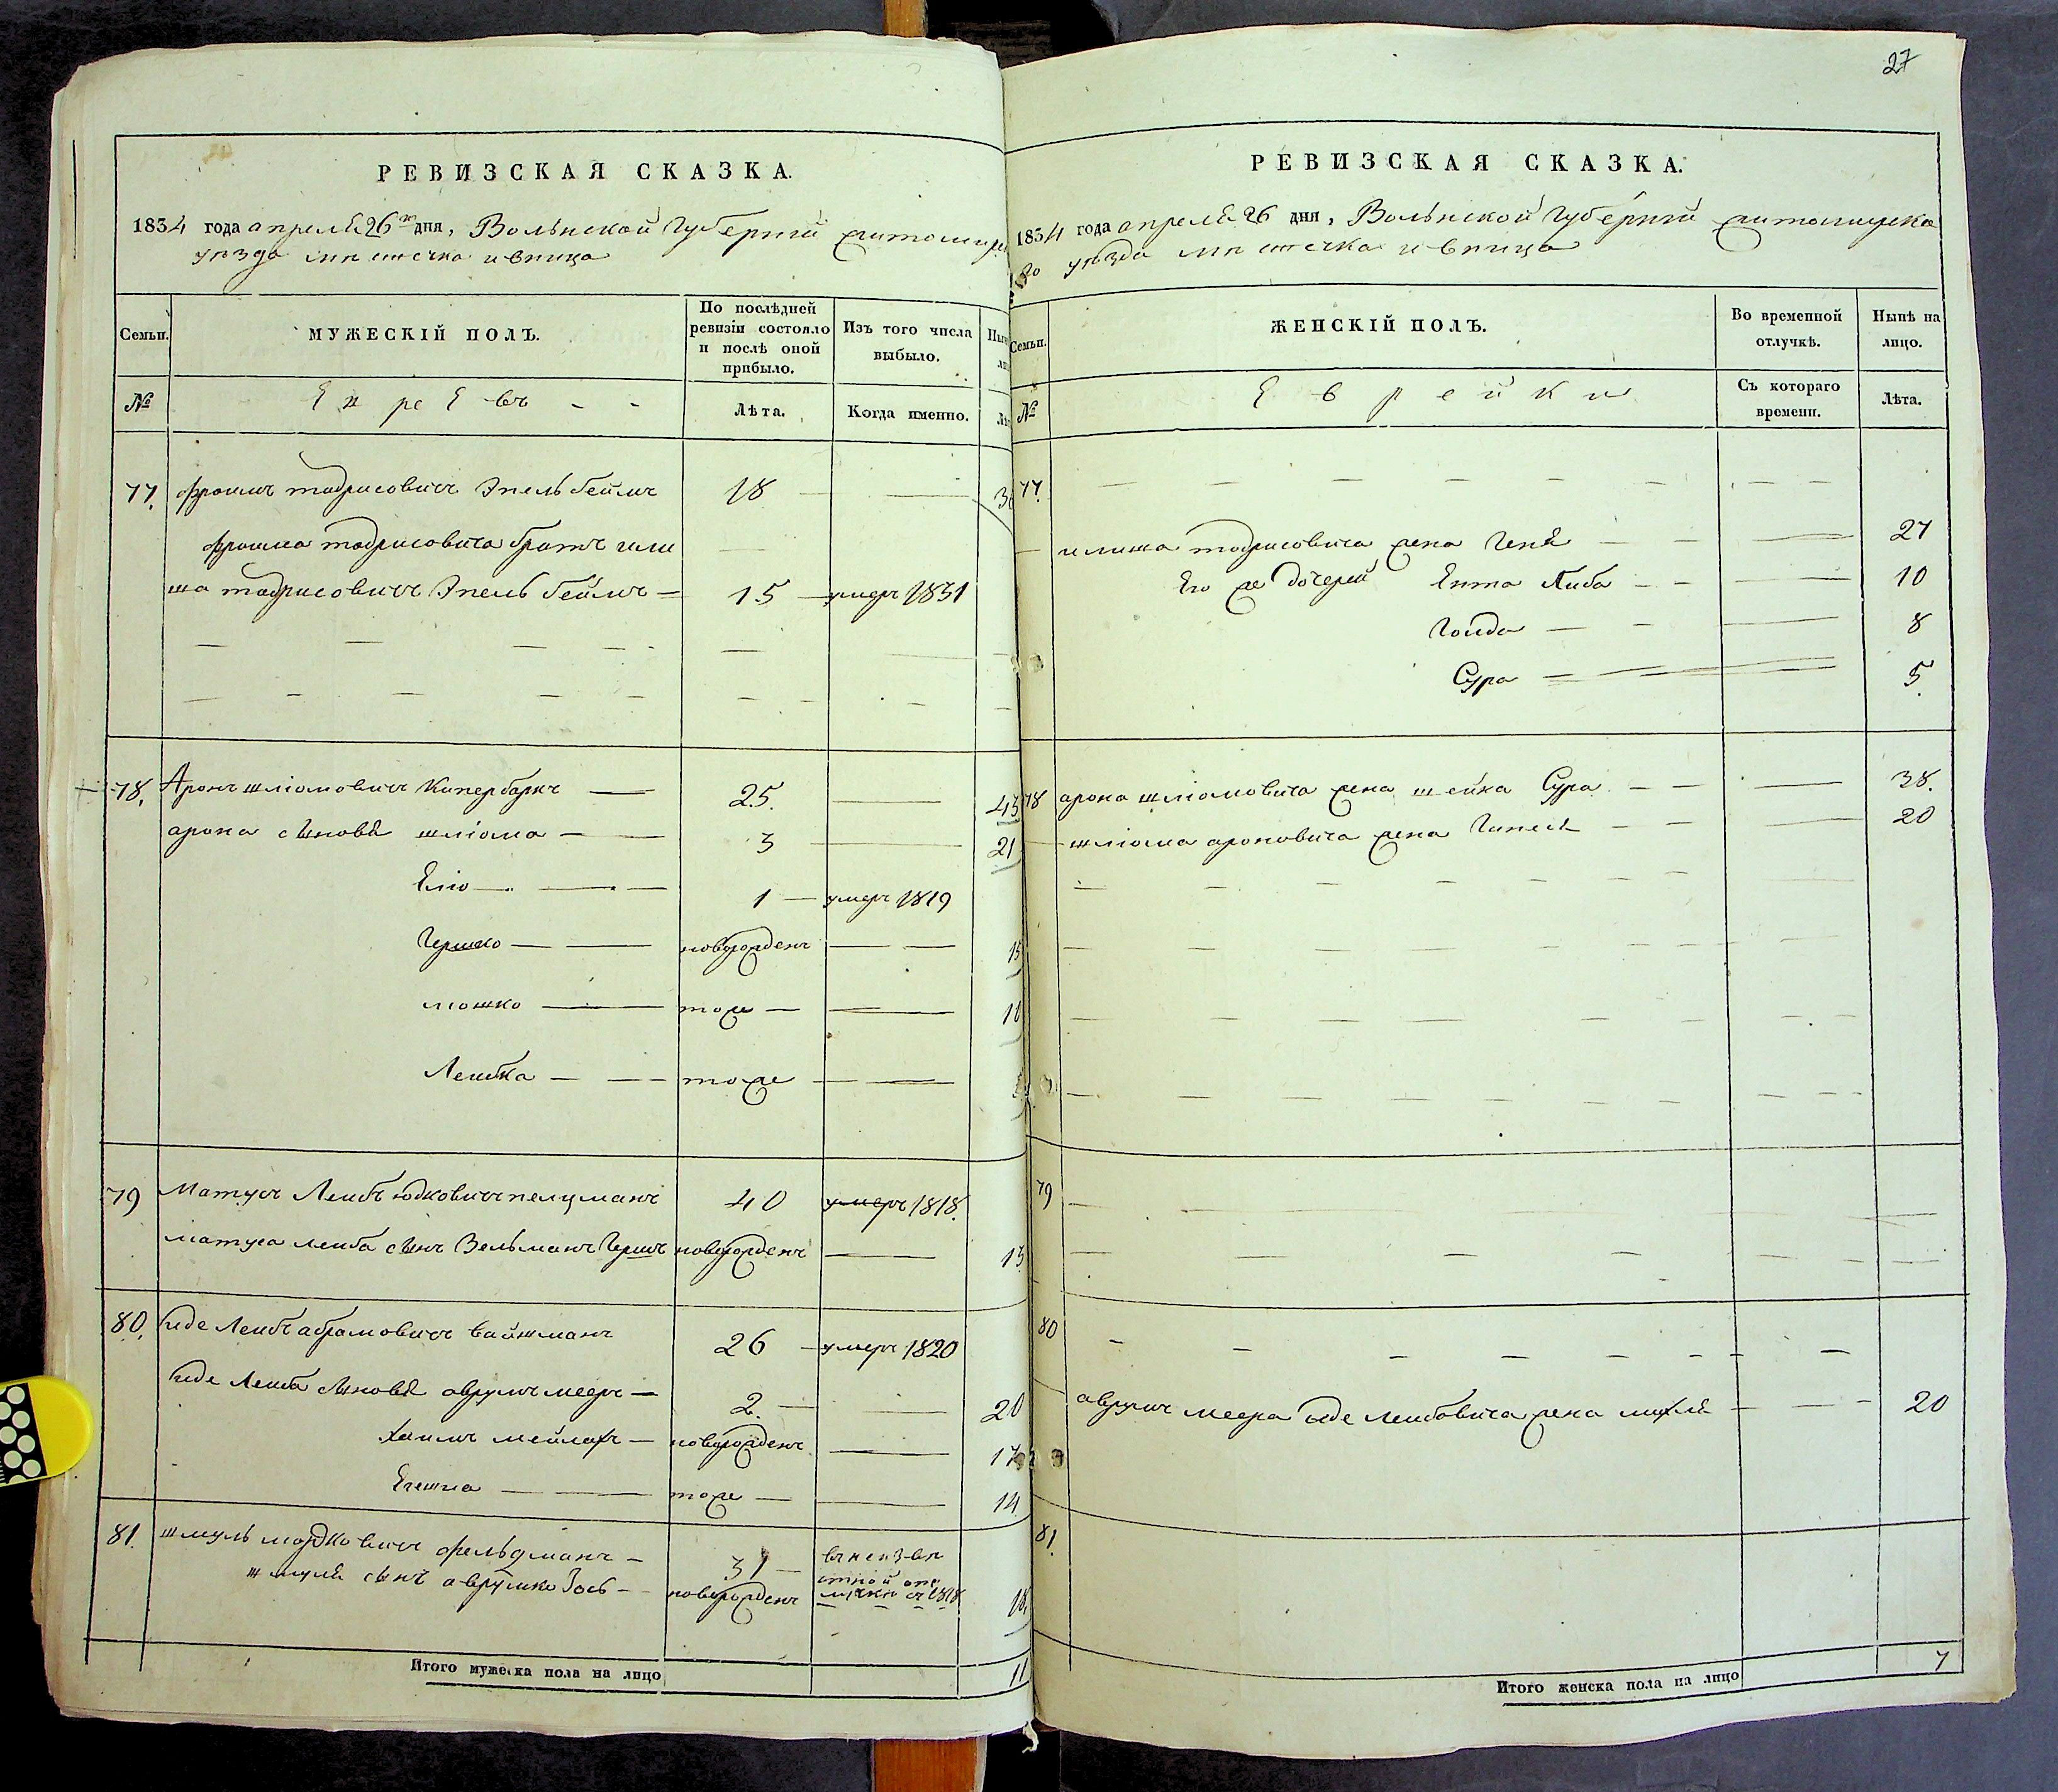 РЕВИЗСКАЯ СКАЗКА.
1834 года апреля 26 дня, Волынской Губернии
уезда местечка ивница
Семьи.
МУЖЕСКІЙ ПОЛЪ.
По послѣдней
ревизіи состояло
и послѣ оной
прибыло.
Изъ того числа
выбыло.
№
Евреевъ - -
Лѣта.
Когда именно.
77. Фроимъ тодрисовичъ Эпельбеймъ 18 —
Фроима тодрисовича братъ гили
ша тодрисовичъ Эпельбеймъ — 15 — умеръ 1831
78. Аронъ шліомовичъ Кипербаркъ — 25. — 43
арона сыновя шліома — 3 — 21
Еліо — 1 — умеръ 1819
Гершко — новорожденъ — 15
мошко — тоже —
Леибка — тоже —
79 Матусъ Леибъ юдковичъ пелцманъ 40 умеръ 1818.
матуса леиба сынъ Зельманъ Гершъ новорожденъ — 15
80. Иде Леибъ абрамовичъ вайнманъ 26 — умеръ 1820
Иде Леиба сыновя аврумъ меерь — 2. — 20
Хаимъ мейлахъ — новорожденъ — 17
тоже — 14
81. шмуль мордковичъ фельдманъ — 31 — въ неизве
стной отлучки съ 1818
шмуля сынъ аврумко Зось — новорожденъ 18.
Итого мужеска пола на лицо 11
27
РЕВИЗСКАЯ СКАЗКА.
1834 года апреля 26 дня, Волынской Губернии житомирска
го уезда местечка ивница
Семьи.
ЖЕНСКІЙ ПОЛЪ.
Во временной
отлучкѣ.
Нынѣ на
лицо.
№
Еврейки
Съ котораго
времени.
Лѣта.
77.
тодрисовича жена Геня — 27
Его же дочерей Ента Либа — 10
Голда — 8
Сура — 5.
78 арона шліомовича жена шейка Сура. — 38.
шліома ароновича жена Гинеся — 20
79
80
аврумъ меера Иде леибовича жена михля — 20
81.
Итого женска пола на лицо 7